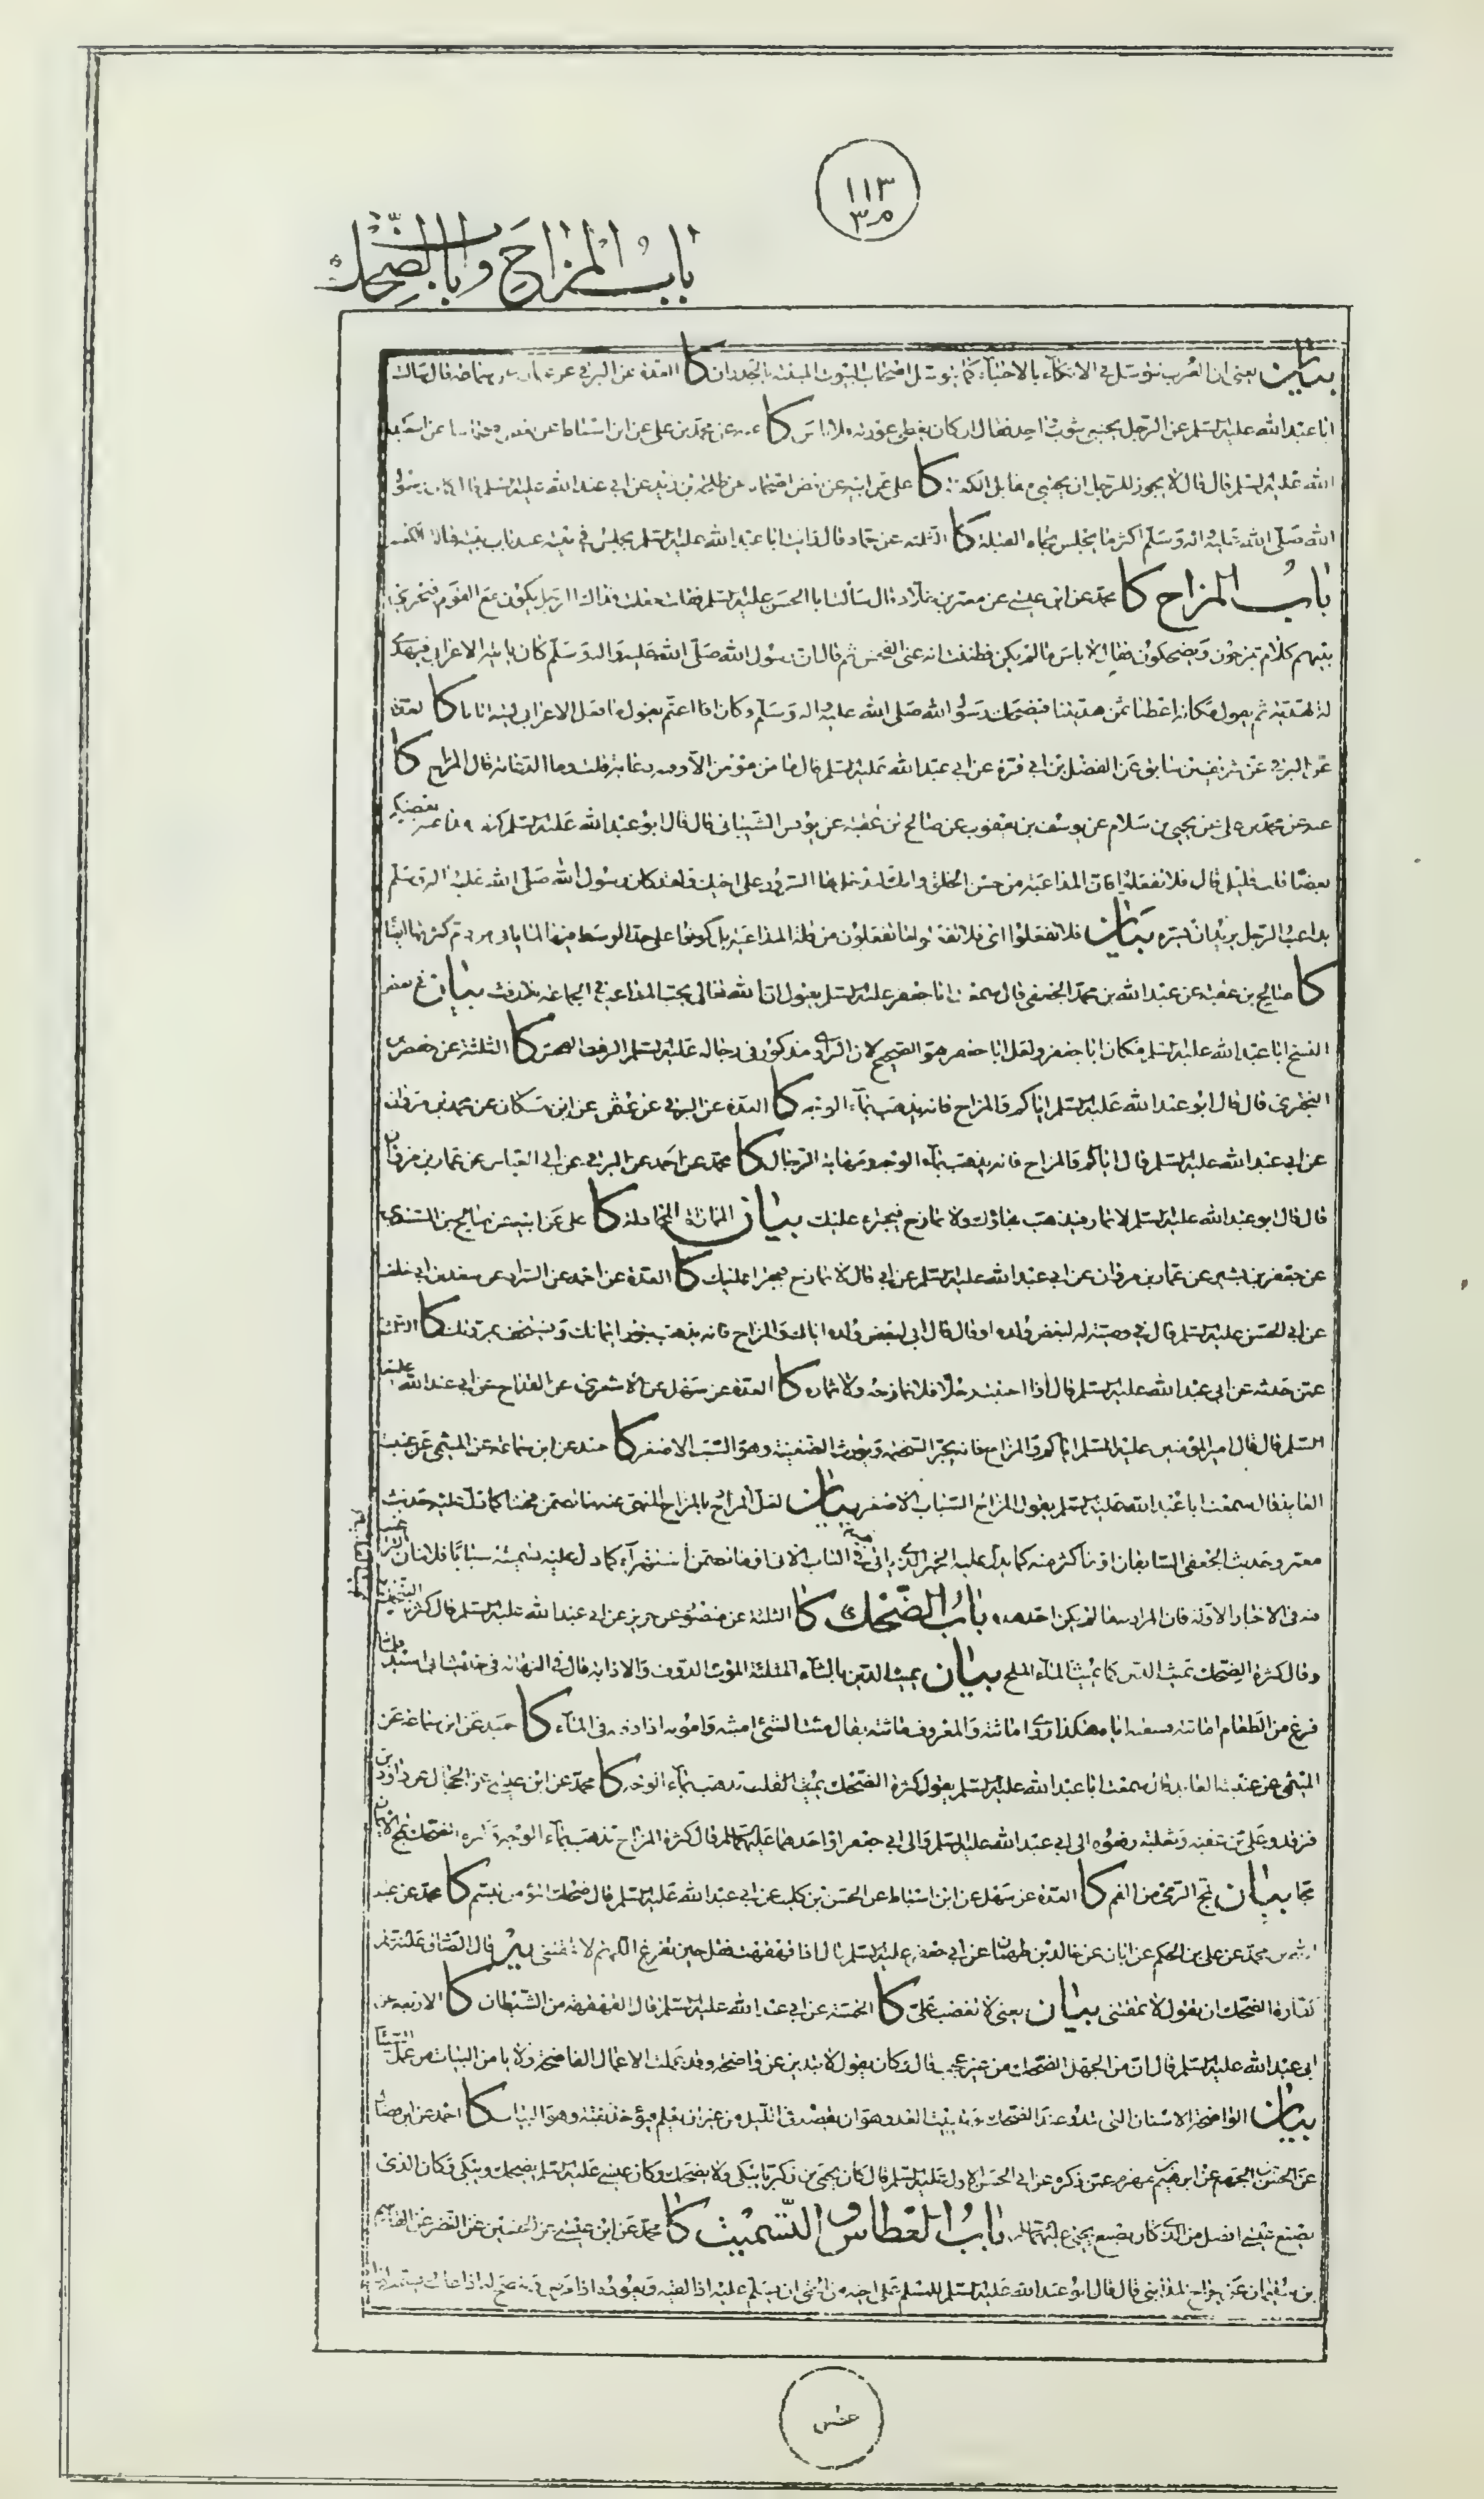 ١١٣
م٣
باب المزاح وباب الضحك
بيان يعني ان العرب يتوسل في الاتكاء بالاحتباء كما يتوسل اصحاب البيوت المبنية بالجدران كا العدة عن البرقي عن عثمان عن سماعة قال سالت
ابا عبد الله عليه السلم عن الرجل يحتبي بثوب واحد فقال ان كان يغطي عورته فلا باس كا عنه عن محمد بن علي عن ابن اسباط عن بعض اصحابنا عن
الله عليه السلم قال قال لا يجوز للرجل ان يحتبي مقابل الكعبة كا علي عن ابيه عن بعض اصحابه عن طلحة بن زيد عن ابي عبد الله عليه السلم قال كان رسول
الله صلى الله عليه واله وسلم اكثر ما يجلس تجاه القبلة كا الثلثة عن حماد قال رايت ابا عبد الله عليه السلم يجلس في بيته عند باب بيته قبالة الكعبة
باب المزاح كا محمد عن ابن عيسى عن معمر بن خلاد قال سالت ابا الحسن عليه السلم فقلت جعلت فداك الرجل يكون مع القوم فيجري
بينهم كلام يمزحون ويضحكون فقال لا باس ما لم يكن فظننت انه عنى الفحش ثم قال ان رسول الله صلى الله عليه واله وسلم كان ياتيه الاعرابي فيهدي
له الهدية ثم يقول مكانه اعطنا ثمن هديتنا فيضحك رسول الله صلى الله عليه واله وسلم وكان اذا اغتم يقول ما فعل الاعرابي ليته اتانا كا العدة
عن البرقي عن شريف بن سابق عن الفضل بن ابي قرة عن ابي عبد الله عليه السلم قال ما من مؤمن الا وفيه دعابة قلت وما الدعابة قال المزاح كا
عنه عن محمد بن علي عن يحيى بن سلام عن يوسف بن يعقوب عن صالح بن عقبة عن يونس الشيباني قال قال ابو عبد الله عليه السلم كيف مداعبة بعضكم
بعضا قلت قليل قال فلا تفعلوا فان المداعبة من حسن الخلق وانك لتدخل بها السرور على اخيك ولقد كان رسول الله صلى الله عليه واله وسلم
يداعب الرجل يريد ان يسره بيان فلا تفعلوا اي فلا تفعلوا ما تفعلون من قلة المداعبة بل كونوا على حد الوسط فيها لما ياتي من ذم كثرتها ايضا
كا صالح بن عقبة عن عبد الله بن محمد الجعفي قال سمعت ابا جعفر عليه السلم يقول ان الله تعالى يحب المداعب في الجماعة بلا رفث بيان في بعض
النسخ ابا عبد الله عليه السلم مكان ابا جعفر ولعل ابا جعفر هو الصحيح لان الراوي مذكور في رجاله عليه السلم الرفث الفحش كا الثلثة عن حفص بن
البختري قال قال ابو عبد الله عليه السلم اياكم والمزاح فانه يذهب بماء الوجه كا العدة عن البرقي عن عثمن عن ابن مسكان عن محمد بن مروان
عن ابي عبد الله عليه السلم قال اياكم والمزاح فانه يذهب بماء الوجه ومهابة الرجال كا محمد عن احمد عن البرقي عن ابي العباس عن عمار بن مروان
قال قال ابو عبد الله عليه السلم لا تمار فيذهب بهاؤك ولا تمازح فيجترء عليك بيان المماراة المجادلة كا علي عن ابيه عن صالح بن السندي
عن جعفر بن بشير عن عمار بن مروان عن ابي عبد الله عليه السلم قال لا تمازح فيجترء عليك كا العدة عن احمد عن السراد عن سعد بن ابي خلف
عن ابي الحسن عليه السلم قال في وصيته له لبعض ولده او قال قال ابي لبعض ولده اياك والمزاح فانه يذهب بنور ايمانك ويستخف بمروتك كا الثلثة
عمن حدثه عن ابي عبد الله عليه السلم قال اذا احببت رجلا فلا تمازحه ولا تماره كا العدة عن سهل عن الاشعري عن القداح عن ابي عبد الله عليه
السلم قال قال امير المؤمنين عليه السلم اياكم والمزاح فانه يجر السخيمة ويورث الضغينة وهو السب الاصغر كا حميد عن ابن سماعة عن الميثمي عن عنبسة
العابد قال سمعت ابا عبد الله عليه السلم يقول المزاح السباب الاصغر بيان لعل المراد بالمزاح المنهي عنه ما تضمن فحشا كما دل عليه حديث
معمر وحديث الجعفي السابقان او ما كثر منه كما يدل عليه الخبر الذي ياتي في الباب الاتي او ما تضمن استهزاء كما دل عليه تسميته سبابا فلا تنافي
منه في الاخبار الاولة فان المراد بها ما لم يكن احدهذه باب الضحك كا الثلثة عن منصور عن حريز عن ابي عبد الله عليه السلم قال كثرة الضحك تميت القلب
وقال كثرة الضحك تميث الدين كما يميث الماء الملح بيان يميث الدين بالثاء المثلثة الموث الدوف والاذابة قال في النهاية في حديث ابي اسيد فلما
فرغ من الطعام اماثته فسقته اياه هكذا روى اماثته والمعروف ماثته يقال مثت الشئ اميثه واموثه اذا دفته في الماء كا حميد عن ابن سماعة عن
الميثمي عن عنبسة العابد قال سمعت ابا عبد الله عليه السلم يقول كثرة الضحك يميت القلب ويذهب بماء الوجه كا محمد عن ابن عيسى عن الحجال عن داود بن
فرقد وعلي بن عقبة وثعلبة رفعوه الى ابي عبد الله عليه السلم والى ابي جعفر او احدهما عليهما السلم قال كثرة المزاح تذهب بماء الوجه وكثرة الضحك تمج الايمان
مجا بيان مج الرمي من الفم كا العدة عن سهل عن ابن اسباط عن الحسن بن كليب عن ابي عبد الله عليه السلم قال ضحك المؤمن تبسم كا محمد عن عبد
الله بن محمد عن علي بن الحكم عن ابان عن خالد بن طهمان عن ابي جعفر عليه السلم قال اذا قهقهت فقل حين تفرغ اللهم لا تمقتني يه قال الصادق عليه السلم
كفارة الضحك ان يقول اللهم لا تمقتني بيان يعني لا تغضب علي كا الخمسة عن ابي عبد الله عليه السلم قال القهقهة من الشيطان كا الاربعة عن
ابي عبد الله عليه السلم قال ان من الجهل الضحك من غير عجب قال وكان يقول لا تبدين عن واضحة وقد عملت الاعمال الفاضحة ولا يامن البيات من عمل السيئات
بيان الواضحة الاسنان التي تبدو عند الضحك وتبييت العدو هو ان يقصد في الليل من غير ان يعلم فيؤخذ بغتة وهو البيات كا احمد عن ابن فضال
عن الحسن بن الجهم عن ابرهيم بن مهزم عمن ذكره عن ابي الحسن الاول عليه السلم قال كان يحيى بن زكريا يبكي ولا يضحك وكان عيسى عليه السلم يضحك ويبكي وكان الذي
يصنع عيسى افضل من الذي كان يصنع يحيى عليهما السلم باب العطاس والتسميت كا محمد عن ابن عيسى عن الحسين عن النضر عن القاسم
بن سليمان عن جراح المدايني قال قال ابو عبد الله عليه السلم للمسلم على اخيه من الحق ان يسلم عليه اذا لقيه ويعوده اذا مرض وينصح له اذا غاب ويسمته اذا
عطس